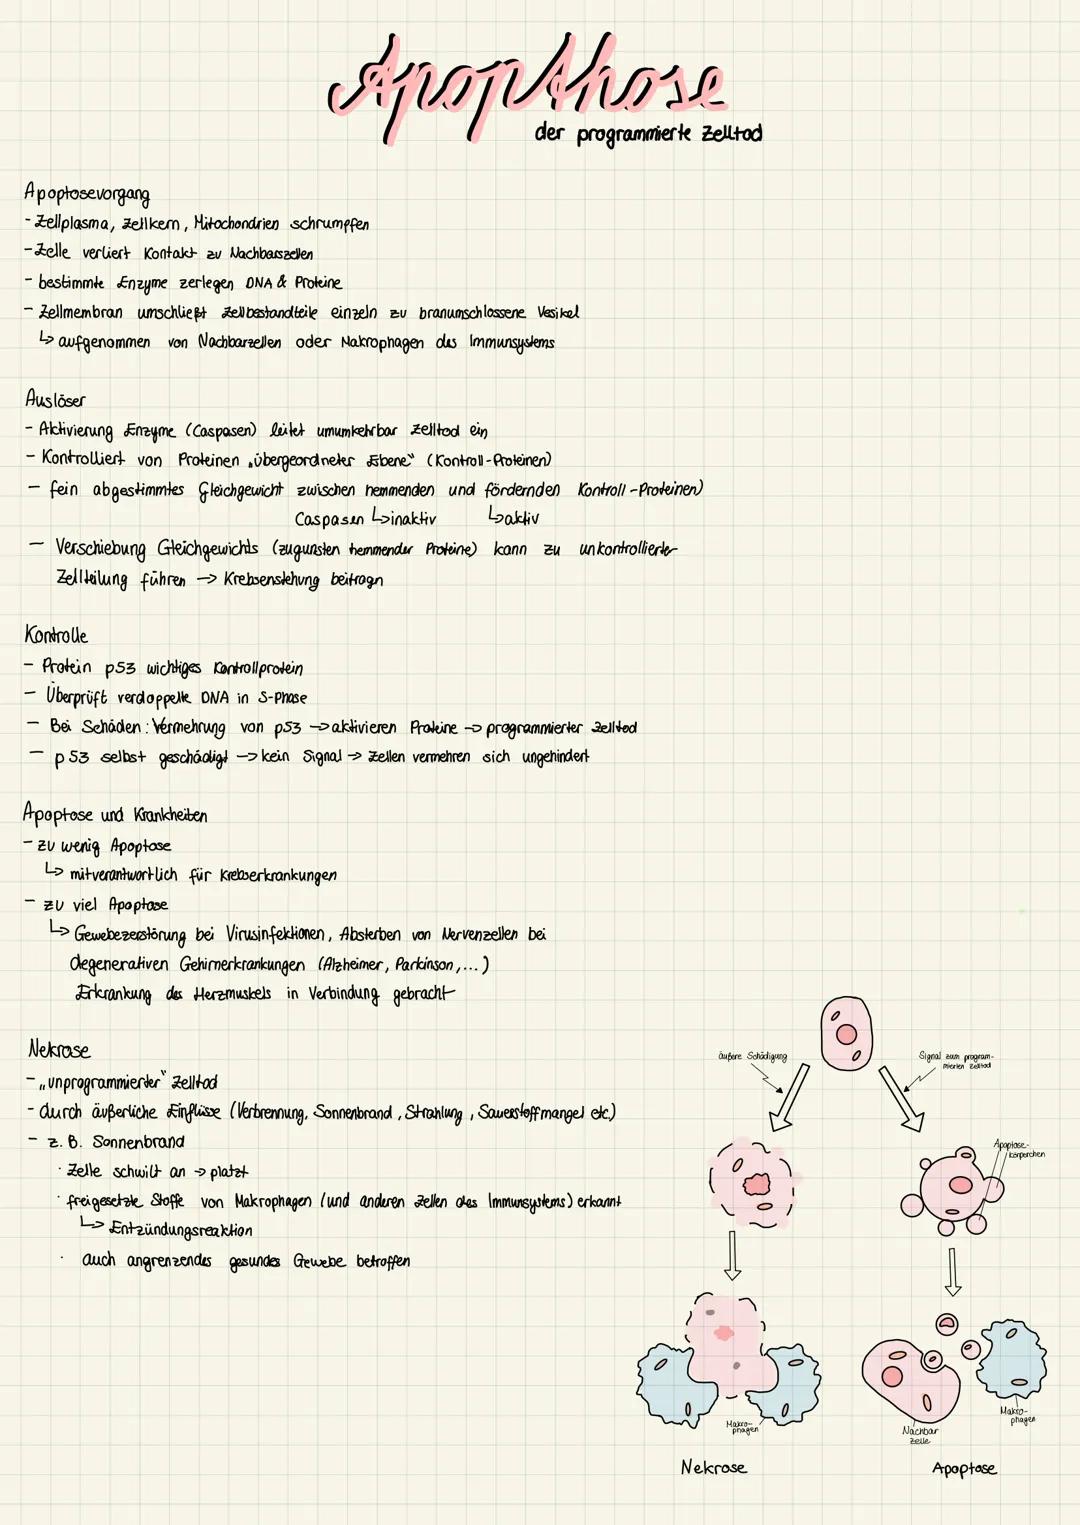 Apopthose
der programmierte Zelltod
Apoptosevorgang
- Zellplasma, Zellkern, Mitochondrien schrumpfen
- Zelle verliert Kontakt zu Nachbarszellen
- bestimmte Enzyme zerlegen DNA & Proteine
- Zellmembran umschließt Zellbestandteile einzeln zu branumschlossene Vesikel
↳ aufgenommen von Nachbarzellen oder Makrophagen des Immunsystems
Auslöser
- Aktivierung Enzyme (Caspasen) leitet umumkehrbar Zelltod ein
- Kontrolliert von Proteinen „übergeordneter Ebene" (Kontroll-Proteinen)
- fein abgestimmtes Gleichgewicht zwischen hemmenden und fördernden Kontroll-Proteinen)
Caspasen ↳inaktiv ↳aktiv
- Verschiebung Gleichgewichts (zugunsten hemmender Proteine) kann zu unkontrollierter
Zellteilung führen → Krebsenstehung beitragn
Kontrolle
- Protein p53 wichtiges Kontrollprotein
- Überprüft verdoppelte DNA in S-Phase
- Bei Schäden: Vermehrung von p53 → aktivieren Proteine → programmierter Zelltod
- p53 selbst geschädigt → kein Signal → Zellen vermehren sich ungehindert
Apoptose und Krankheiten
- zu wenig Apoptose
↳ mitverantwortlich für Krebserkrankungen
- zu viel Apoptose
↳ Gewebezerstörung bei Virusinfektionen, Absterben von Nervenzellen bei
degenerativen Gehirnerkrankungen (Alzheimer, Parkinson,...)
Erkrankung des Herzmuskels in Verbindung gebracht
Nekrose
- „unprogrammierter" Zelltod
- durch äußerliche Einflüsse (Verbrennung, Sonnenbrand, Strahlung, Sauerstoffmangel etc.)
- z.B. Sonnenbrand
· Zelle schwilt an → platzt
· freigesetzte Stoffe von Makrophagen (und anderen Zellen des Immunsystems) erkannt
↳ Entzündungsreaktion
· auch angrenzendes gesundes Gewebe betroffen
äußere Schädigung
Signal zum program-
mierten Zelltod
Apoptose-
körperchen
Makro-
phagen
Nachbar
zelle
Makro-
phagen
Nekrose
Apoptose